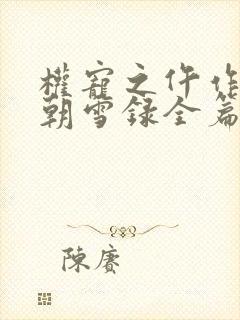 權寵之仵作
朝雪錄全篇
陳賡